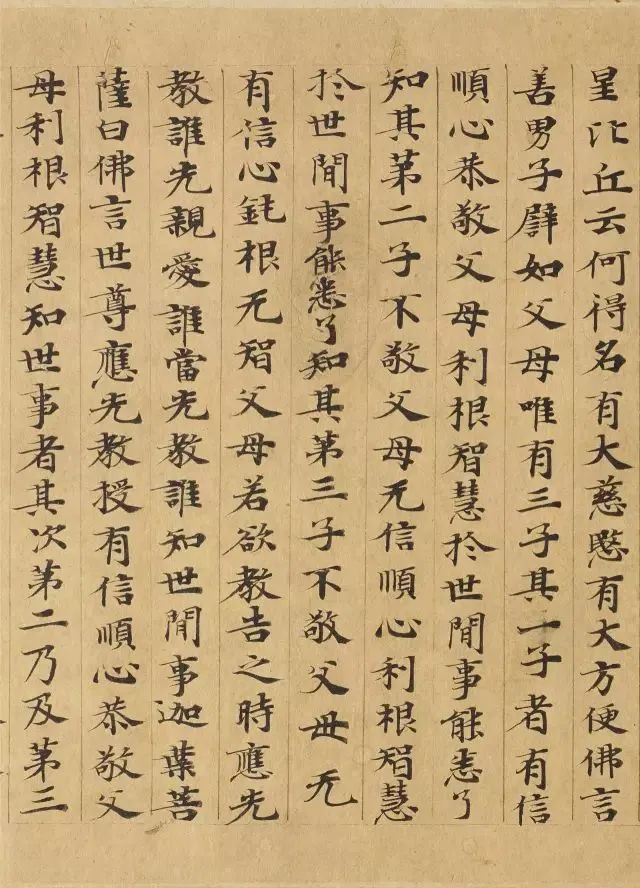 星比丘云何得名有大慈愍有大方便佛言
善男子譬如父母唯有三子其一子者有信
順心恭敬父母利根智慧於世間事能悉了
知其第二子不敬父母无信順心利根智慧
於世間事能悉了知其第三子不敬父母无
有信心鈍根无智父母若欲教告之時應先
教誰先親愛誰當先教誰知世間事迦葉菩
薩白佛言世尊應先教授有信順心恭敬父
母利根智慧知世事者其次第二乃及第三